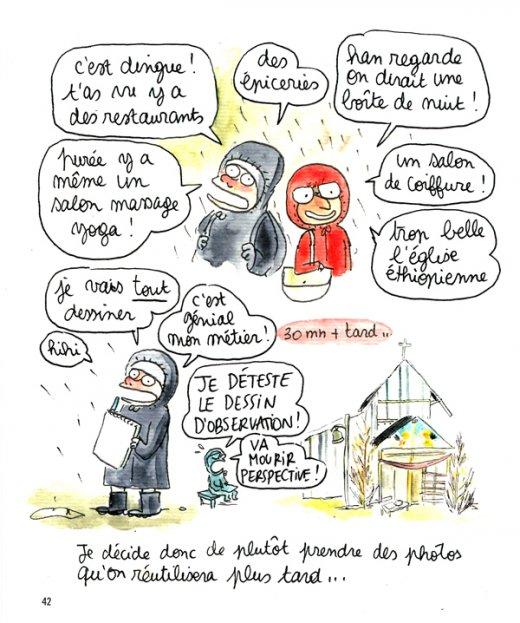 c'est dingue !
t'as vu y a
des restaurants
des
épiceries
han regarde
on dirait une
boîte de nuit !
purée y a
même un
salon massage
yoga !
un salon
de coiffure !
trop belle
l'église
éthiopienne
je vais tout
dessiner
hihi
c'est
génial
mon métier !
30 mn + tard..
JE DÉTESTE
LE DESSIN
D'OBSERVATION !
VA
MOURIR
PERSPECTIVE !
Je décide donc de plutôt prendre des photos
qu'on réutilisera plus tard...
42